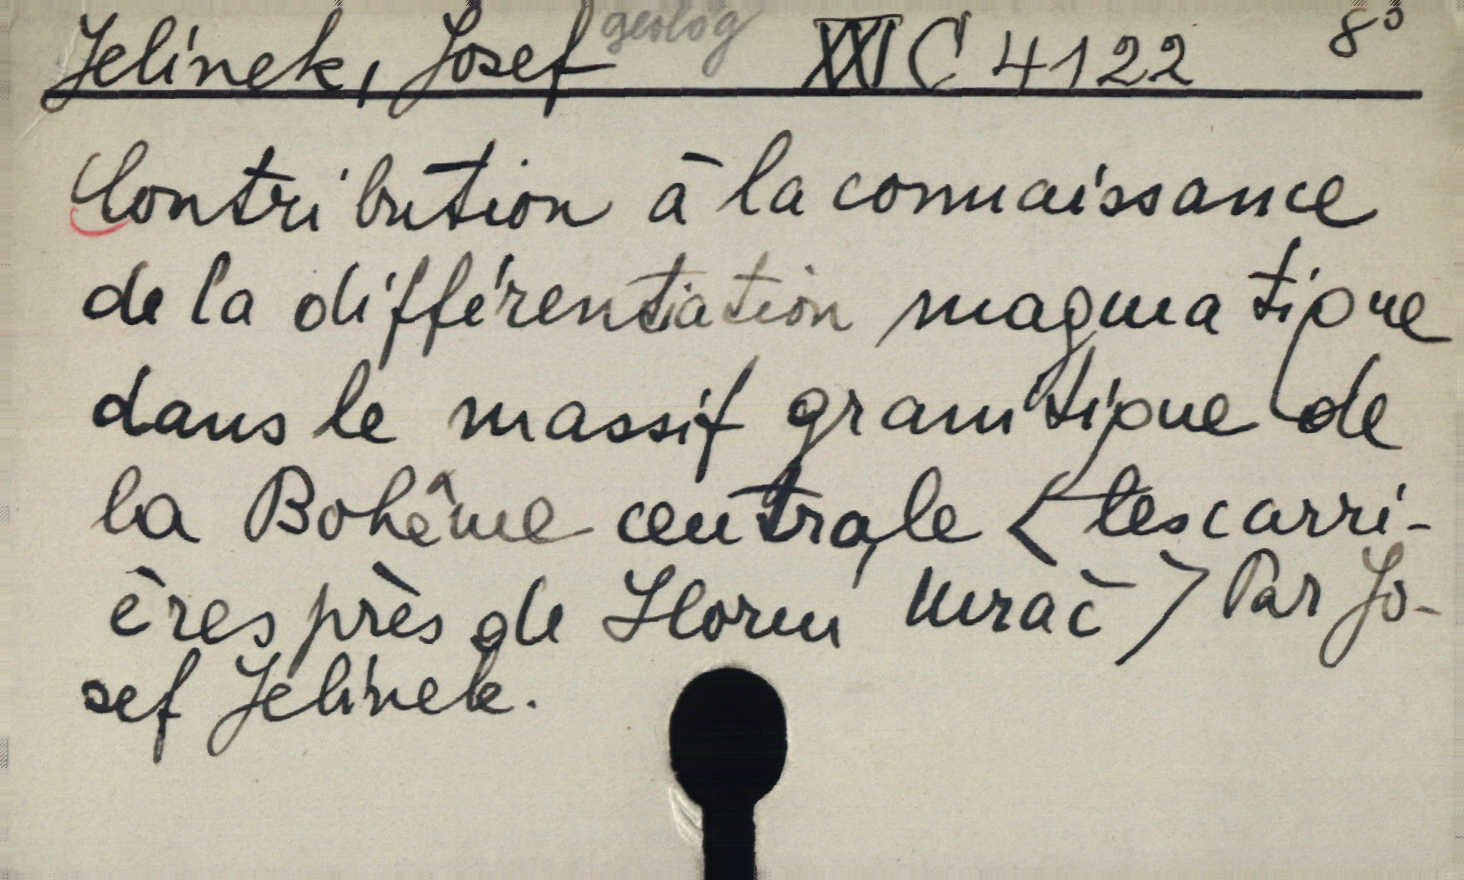 Jelínek, Josef geolog XXI C 4122 8°
Contribution à la connaissance
de la différentiation magmatique
dans le massif granitique de
la Bohême centrale <les carri-
ères près de Horní Mrač> Par Jo-
sef Jelínek.